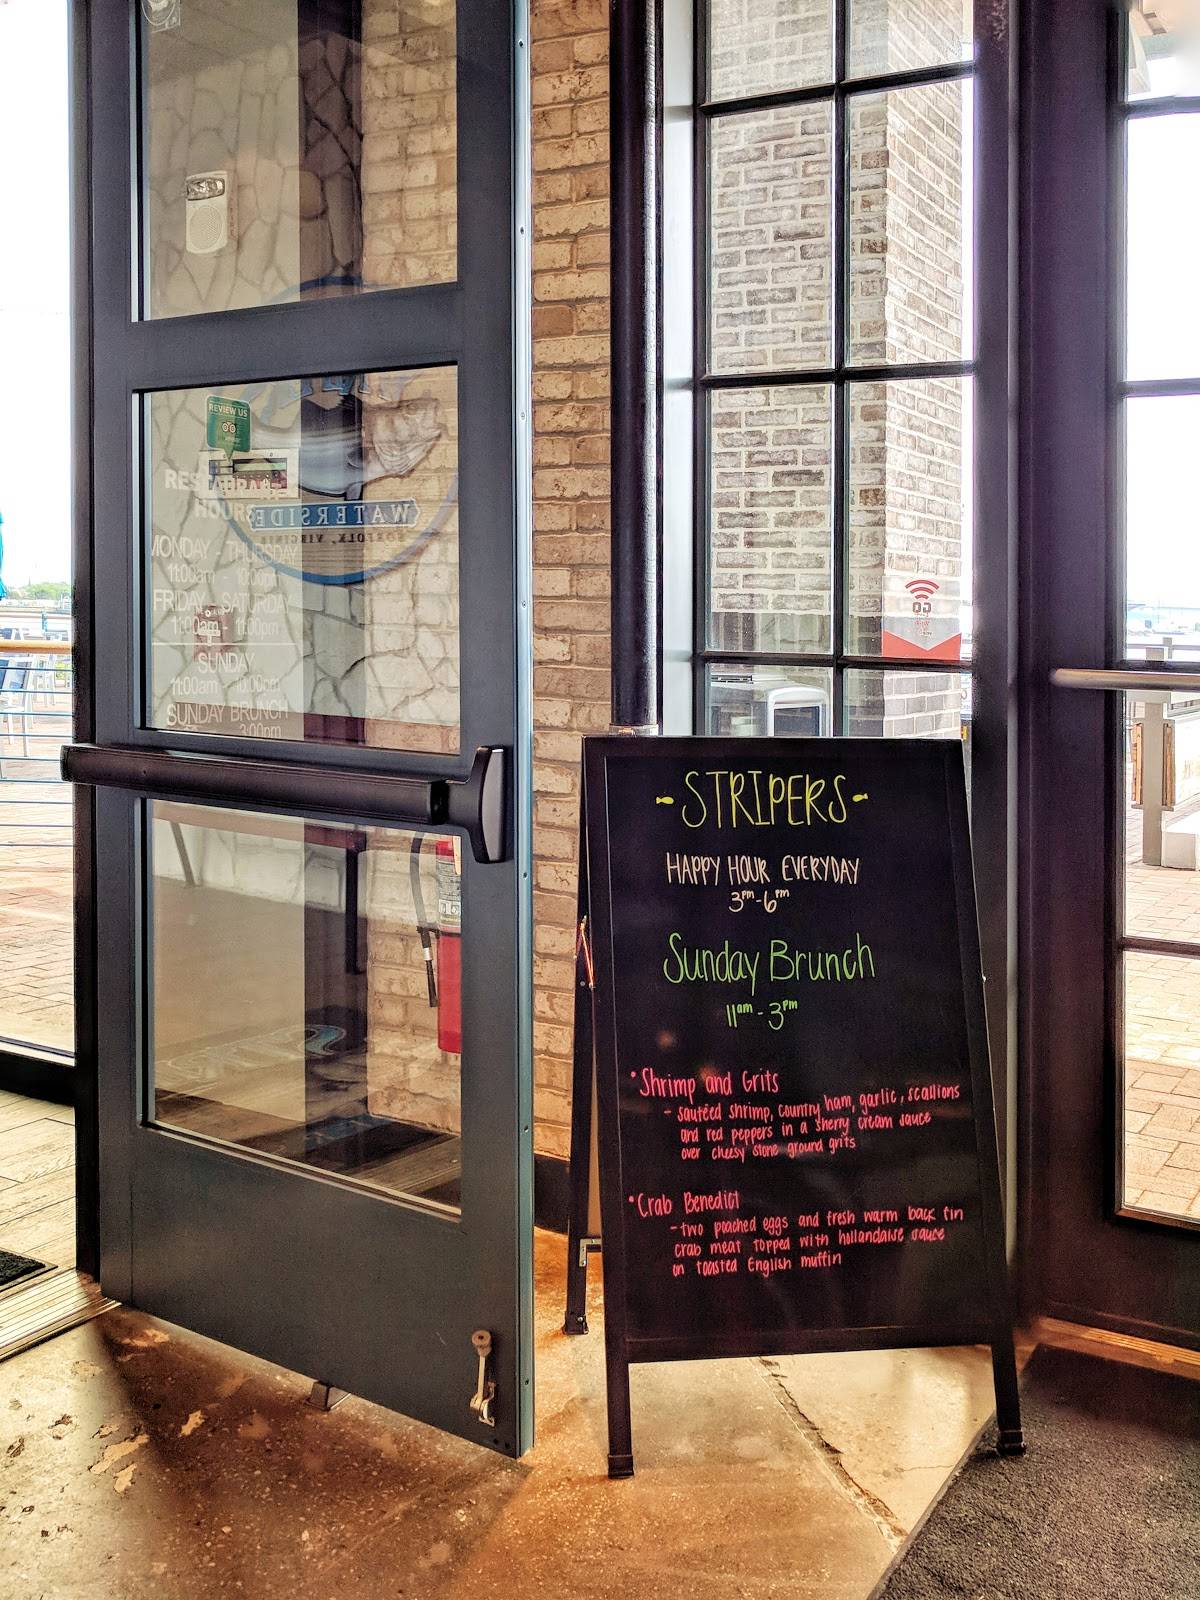 REVIEW US
HOURS
WATERSIDE
NORFOLK, VIRGINIA
MONDAY - THURSDAY
11:00am - 10:00pm
FRIDAY - SATURDAY
11:00am - 11:00pm
SUNDAY
11:00am - 10:00pm
SUNDAY BRUNCH
3:00pm
STRIPERS
HAPPY HOUR EVERYDAY
3pm - 6pm
Sunday Brunch
11am - 3pm
• Shrimp and Grits
- sautéed shrimp, country ham, garlic, scallions
and red peppers in a sherry cream sauce
over cheesy stone ground grits
• Crab Benedict
- two poached eggs and fresh warm back fin
crab meat topped with hollandaise sauce
on toasted English muffin